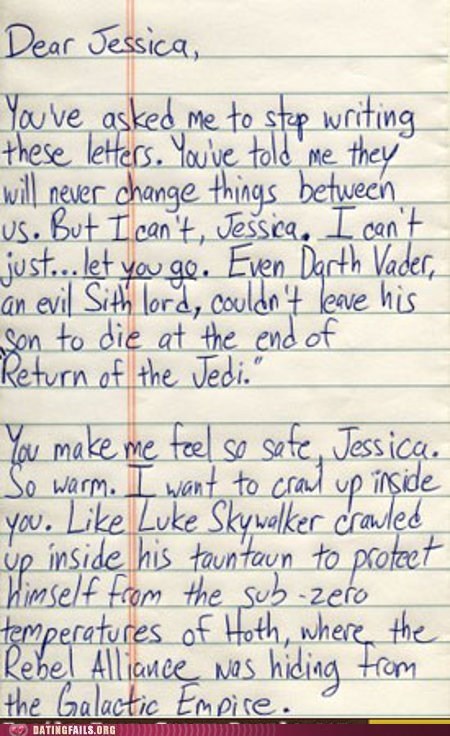 Dear Jessica,
You've asked me to stop writing
these letters. You've told me they
will never change things between
us. But I can't, Jessica. I can't
just...let you go. Even Darth Vader,
an evil Sith lord, couldn't leave his
son to die at the end of
"Return of the Jedi."
You make me feel so safe, Jessica.
So warm. I want to crawl up inside
you. Like Luke Skywalker crawled
up inside his tauntaun to protect
himself from the sub-zero
temperatures of Hoth, where the
Rebel Alliance was hiding from
the Galactic Empire.
DATINGFAILS.ORG